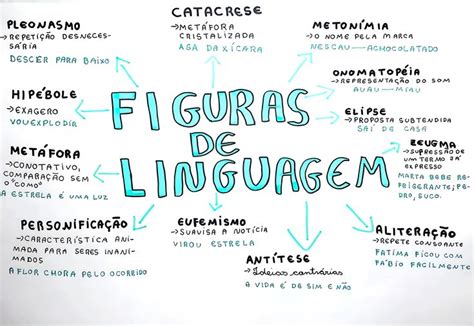 PLEONASMO
→REPETIÇÃO DESNECES-
SÁRIA
DESCER PARA BAIXO
CATACRESE
→METÁFORA
CRISTALIZADA
ASA DA XÍCARA
METONÍMIA
→O NOME PELA MARCA
NESCAU→ACHOCOLATADO
ONOMATOPÉIA
→REPRESENTAÇÃO DO SOM
AUAU—MIAU
HIPÉBOLE
→EXAGERO
VOU EXPLODIR
FIGURAS
DE
LINGUAGEM
ELIPSE
→PROPOSTA SUBTENDIDA
SAÍ DE CASA
ZEUGMA
→SUPRESSÃO DE
UM TERMO JÁ
EXPRESSO
MARTA BEBE RE-
FRIGERANTE;PE-
DRO, SUCO.
METÁFORA
→CONOTATIVO,
COMPARAÇÃO SEM
O "COMO"
A ESTRELA É UMA LUZ
PERSONIFICAÇÃO
→CARACTERÍSTICA ANI-
MADA PARA SERES INANI-
MADOS
A FLOR CHORA PELO OCORRIDO
EUFEMISMO
→SUAVISA A NOTÍCIA
VIROU ESTRELA
ANTÍTESE
→Ideias contrárias
A VIDA É DE SIM E NÃO
ALITERAÇÃO
→REPETE CONSOANTE
FATIMA FICOU COM
FÁBIO FACILMENTE